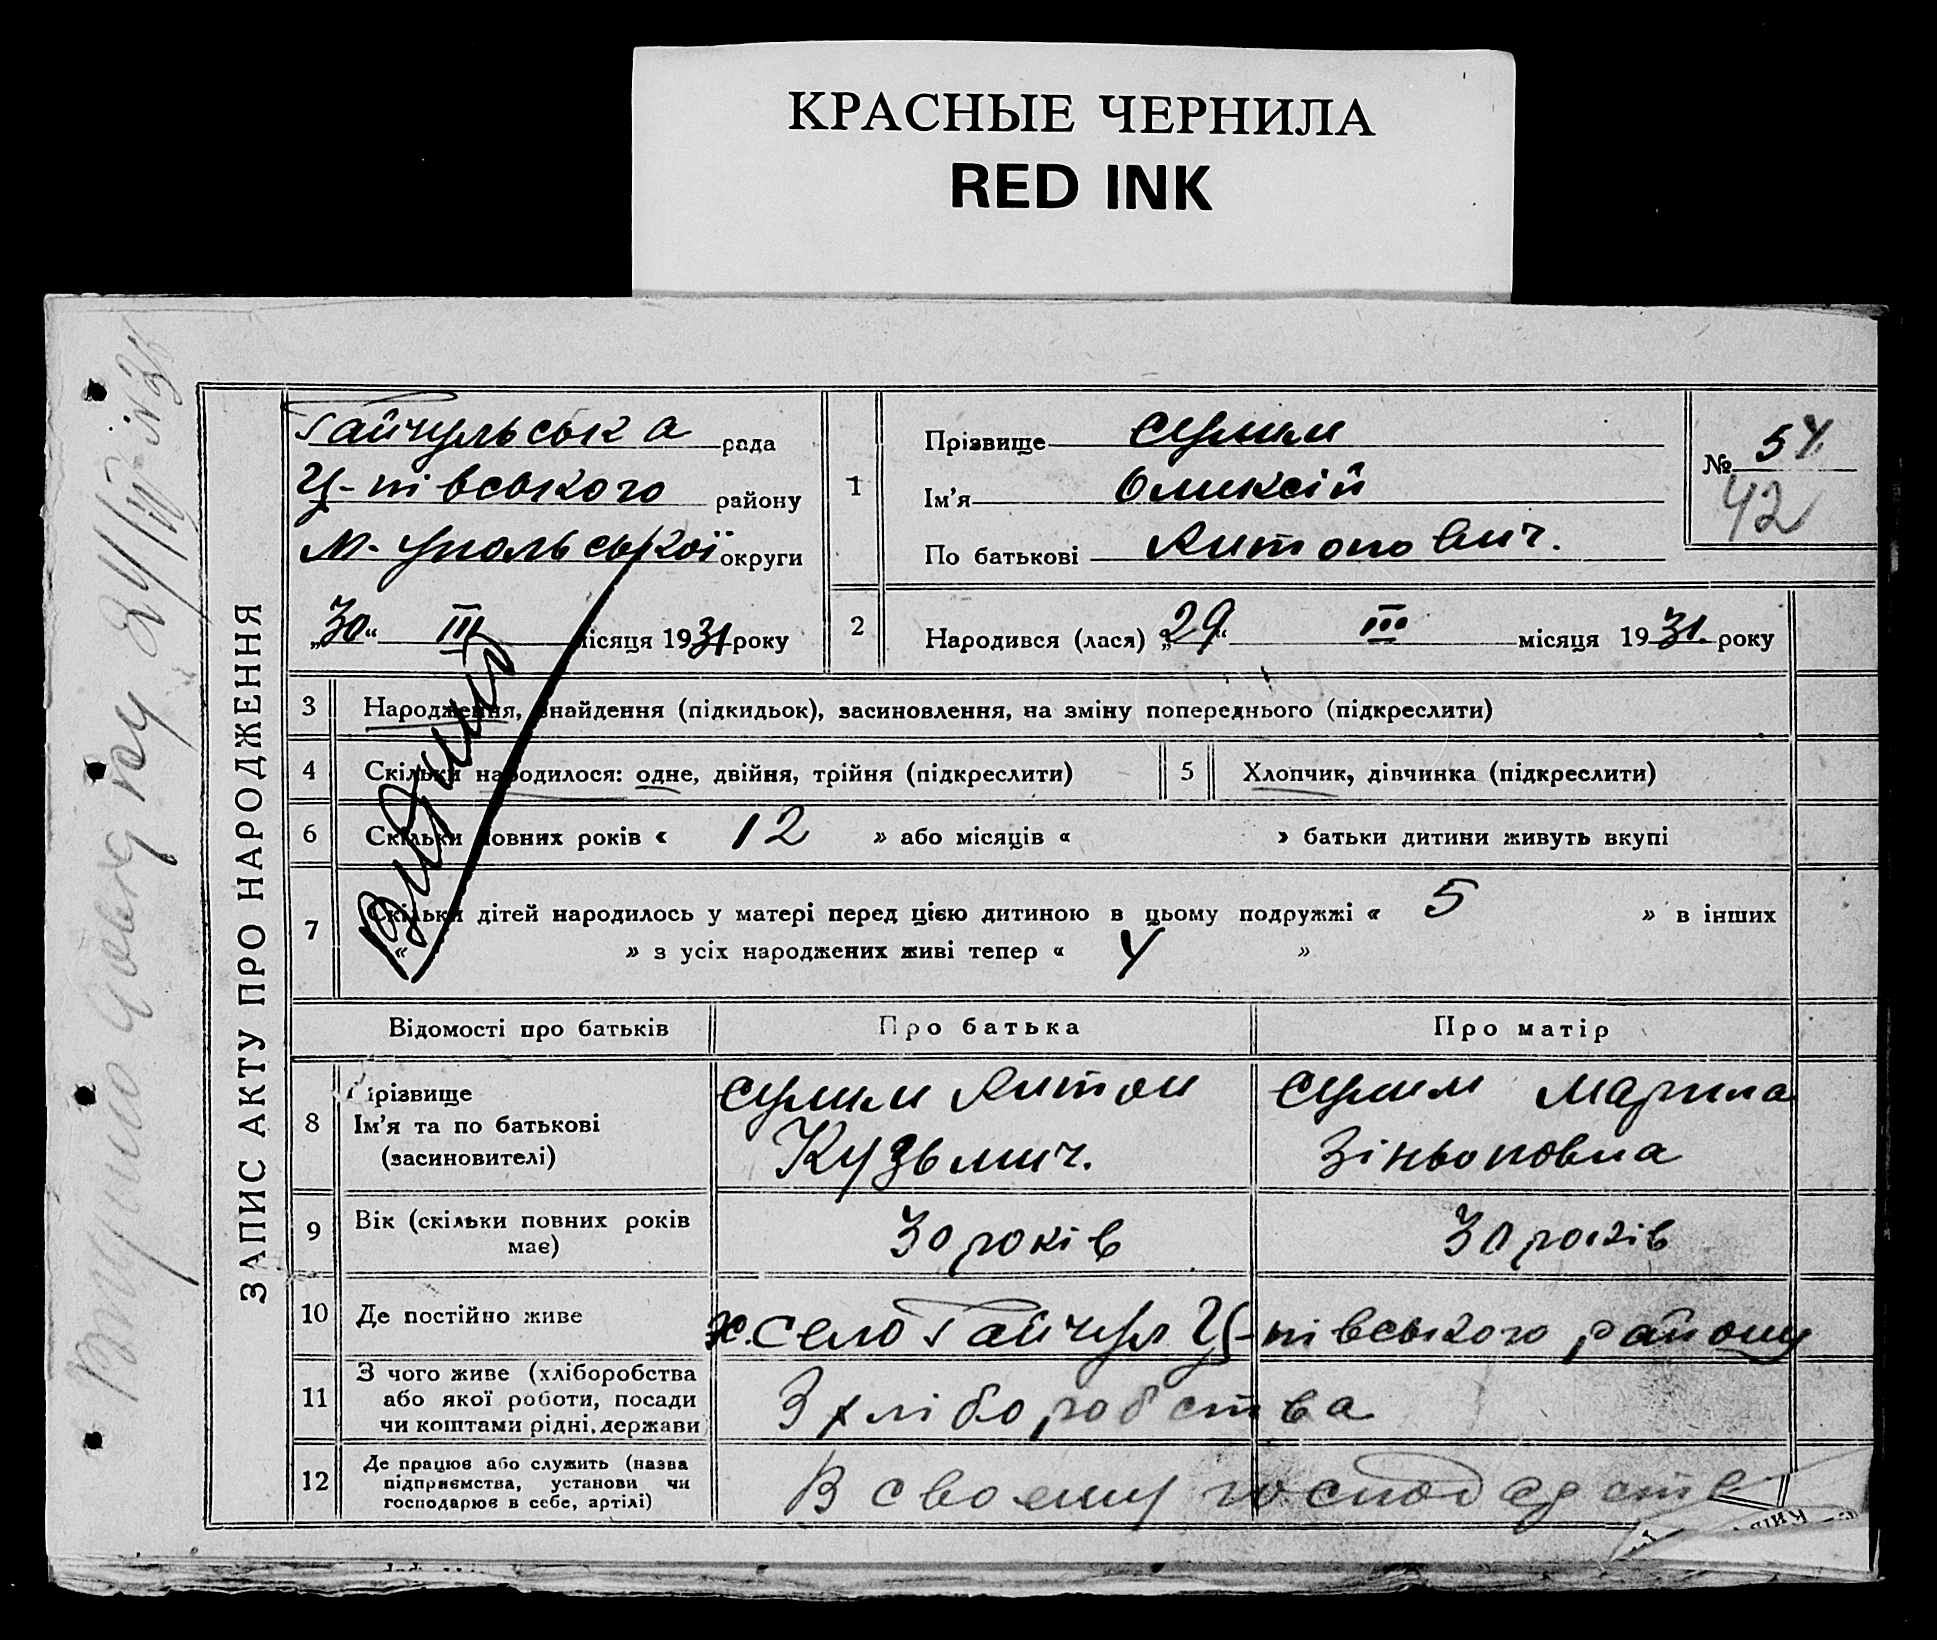 КРАСНЫЕ ЧЕРНИЛА
RED INK
ЗАПИС АКТУ ПРО НАРОДЖЕННЯ
Гайчульська рада
Ц-півського району
М-упольської округи
„30“ III місяця 1931 року
1
Прізвище
Ім'я Оликсій
По батькові Антонович.
№ 54
42
2 Народився (лася) „29“ III місяця 1931 року
3 Народження, знайдення (підкидьок), засиновлення, на зміну попереднього (підкреслити)
4 Скільки народилося: одне, двійня, трійня (підкреслити) 5 Хлопчик, дівчинка (підкреслити)
6 Скільки повних років « 12 » або місяців « » батьки дитини живуть вкупі
7 Скільки дітей народилось у матері перед цією дитиною в цьому подружжі « 5 » в інших
« » з усіх народжених живі тепер « 4 »
Відомості про батьків Про батька Про матір
8 Прізвище
Ім'я та по батькові
(засиновителі)
Антон
Кузьмич.
Марина
Зіньоповна
9 Вік (скільки повних років
має)
30 років 30 років
10 Де постійно живе село Гайчул Ц-півського району
11 З чого живе (хліборобства
або якої роботи, посади
чи коштами рідні, держави
З хліборобства
12 Де працює або служить (назва
підприємства, установи чи
господарює в себе, артілі)
В своему господарстві